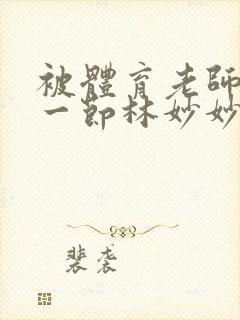 被體育老師
一節林妙妙
裴袭